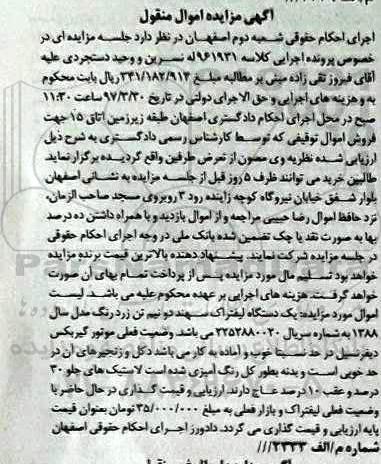 آگهی مزایده اموال منقول
اجرای احکام حقوقی شعبه دوم اصفهان در نظر دارد جلسه مزایده ای در
خصوص پرونده اجرایی کلاسه ۹۶۱۹۳۱ له نسرین و وحید دستجردی علیه
آقای فیروز تقی زاده مبنی بر مطالبه مبلغ ۳۴۱/۱۸۲/۹۱۳ ریال بابت محکوم
به و هزینه های اجرایی و حق الاجرای دولتی در تاریخ ۹۷/۳/۳۰ ساعت ۱۱:۳۰
صبح در محل اجرای احکام دادگستری اصفهان طبقه زیرزمین اتاق ۱۵ جهت
فروش اموال توقیفی که توسط کارشناس رسمی دادگستری به شرح ذیل
ارزیابی شده نظریه وی مصون از تعرض طرفین واقع گردیده برگزار نماید.
طالبین خرید می توانند ظرف ۵ روز قبل از جلسه مزایده به نشانی اصفهان
بلوار شفق خیابان نیروگاه کوچه زاینده رود ۳ روبروی مسجد صاحب الزمان،
نزد حافظ اموال رضا حبیبی مراجعه و از اموال بازدید و با همراه داشتن ده درصد
بها به صورت نقد یا چک تضمین شده بانک ملی در وجه اجرای احکام حقوقی
در جلسه مزایده شرکت نمایند. پیشنهاد دهنده بالاترین قیمت برنده مزایده
خواهد بود تسلیم مال مورد مزایده پس از پرداخت تمام بهای آن صورت
خواهد گرفت. هزینه های اجرایی بر عهده محکوم علیه می باشد. لیست
اموال مورد مزایده: یک دستگاه لیفتراک سهند دو نیم تن زرد رنگ مدل سال
۱۳۸۸ به شماره سریال ۲۲۵۲۸۸۰۰۲۰ می باشد. وضعیت فعلی موتور گیربکس
دیفرنسیل در حد نسبتا خوب و آماده به کار می باشد دکل و زنجیرهای آن در
حد خوبی است و بدنه بطور کل رنگ آمیزی شده است لاستیک های جلو ۳۰
درصد و عقب ۱۰ درصد عاج دارند. ارزیابی و قیمت گذاری در حال حاضر با
وضعیت فعلی لیفتراک و بازار فعلی به مبلغ ۳۵/۰۰۰/۰۰۰ تومان بعنوان قیمت
پایه ارزیابی و قیمت گذاری می گردد. دادورز اجرای احکام حقوقی اصفهان
شماره م/الف ۲۳۳۳///